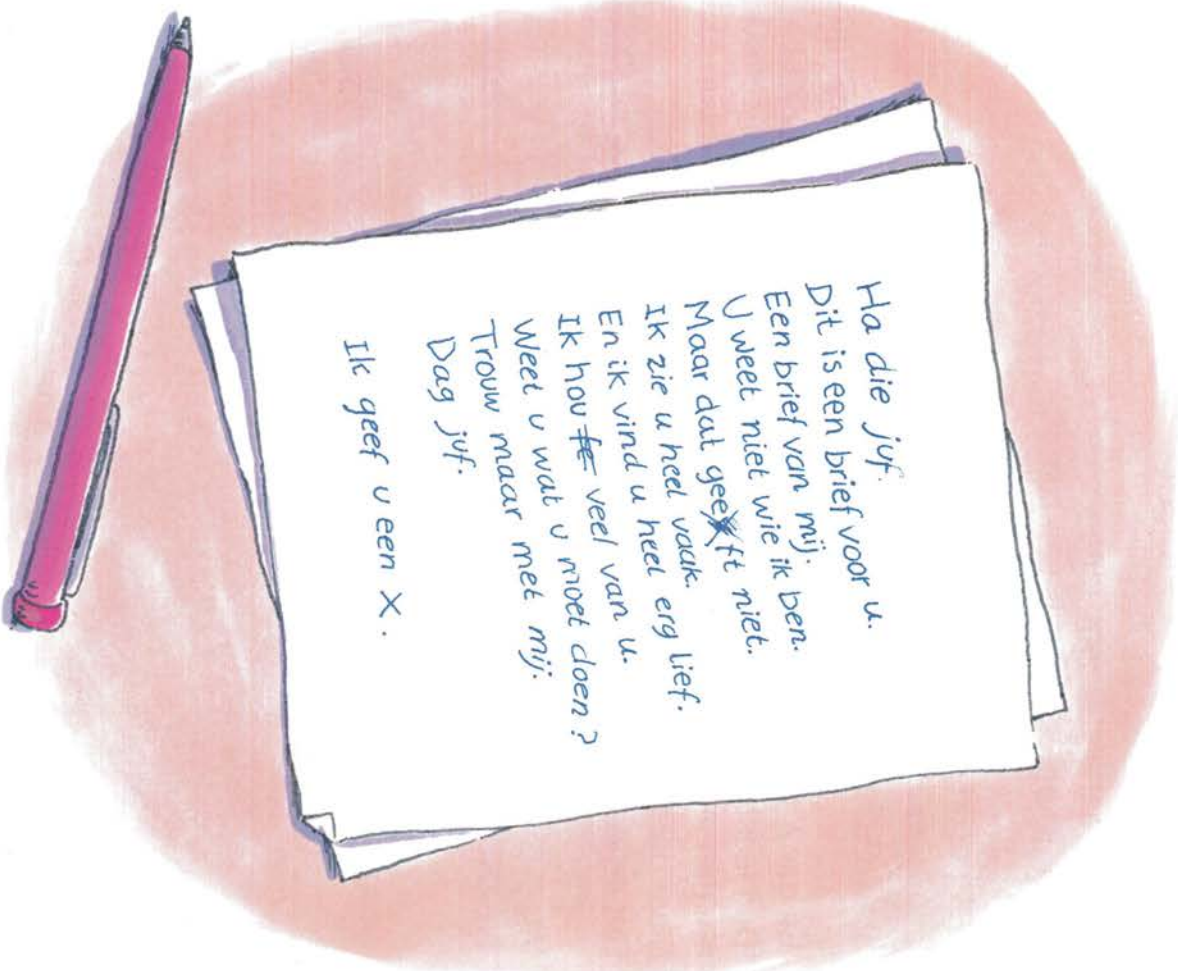 Ha die juf.
Dit is een brief voor u.
Een brief van mij.
U weet niet wie ik ben.
Maar dat geeft niet.
Ik zie u heel vaak.
En ik vind u heel erg lief.
Ik hou veel van u.
Weet u wat u moet doen?
Trouw maar met mij.
Dag juf.
Ik geef u een X.